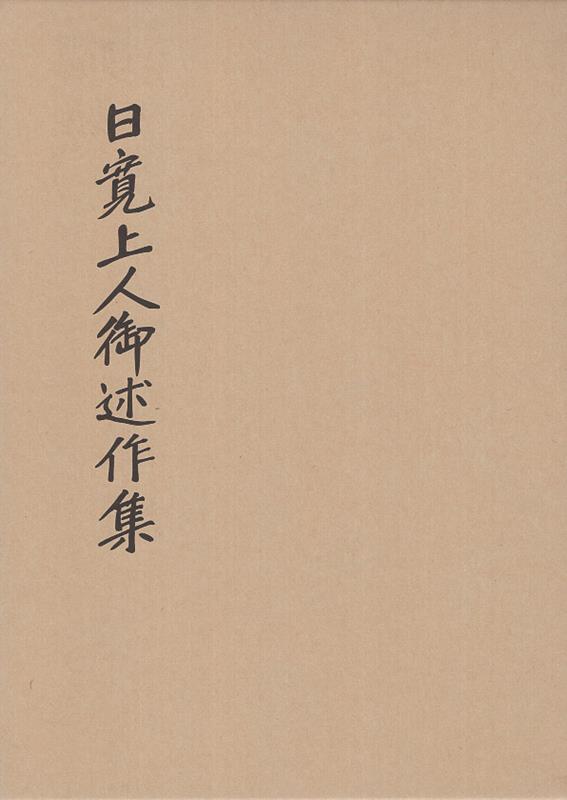 日寛上人御述作集